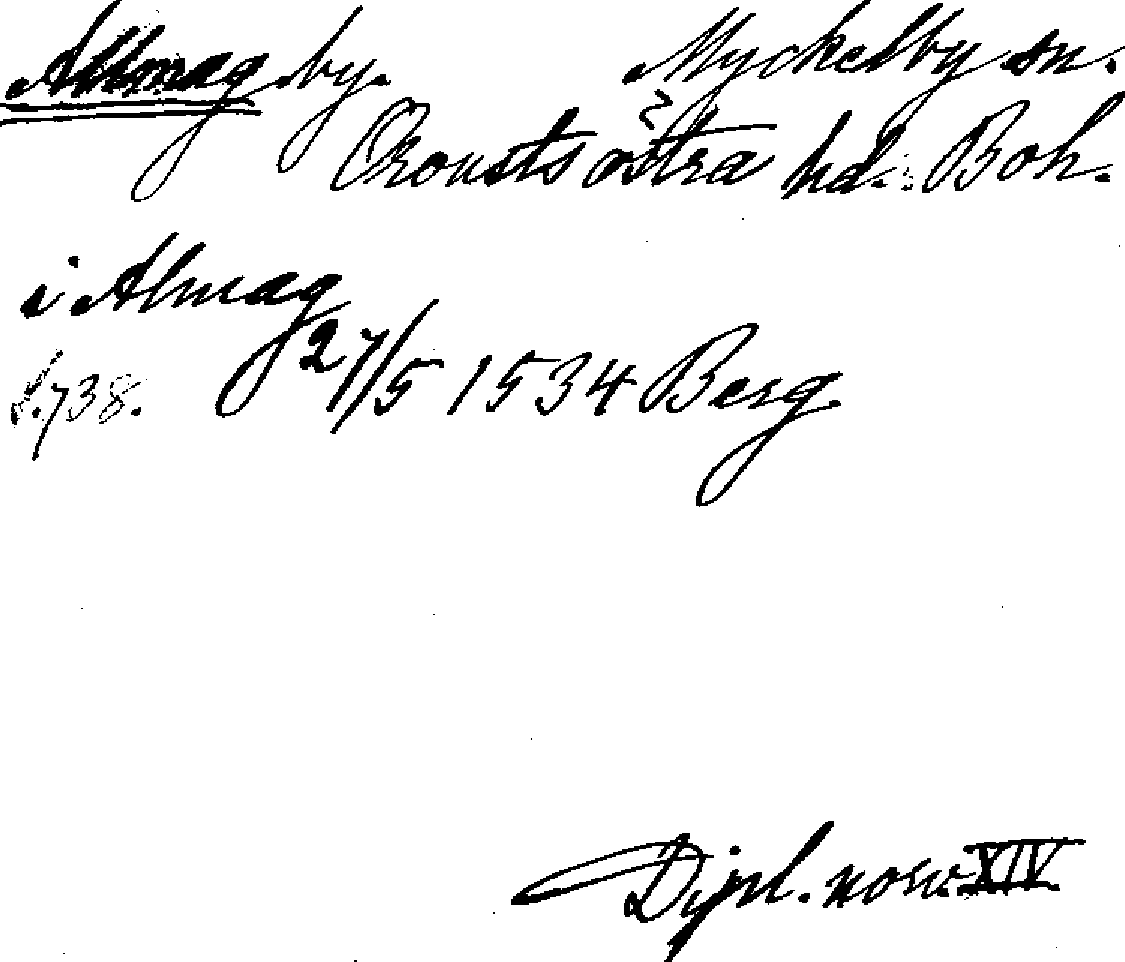 Allmag by. Myckelby sn.
Orousts östra hd. Boh.
i Almag
27/5 1534 Berg
S. 738.
Dipl. norv. XIV